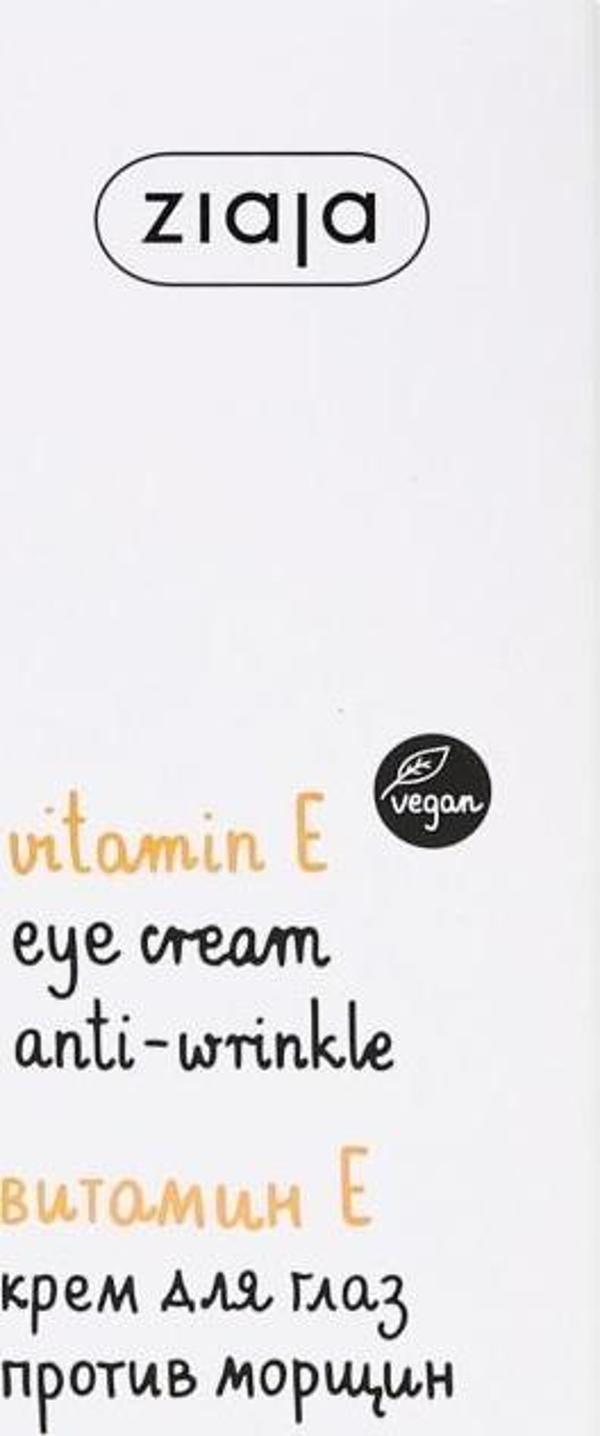 ziaja
vegan
vitamin E
eye cream
anti-wrinkle
витамин E
крем для глаз
против морщин